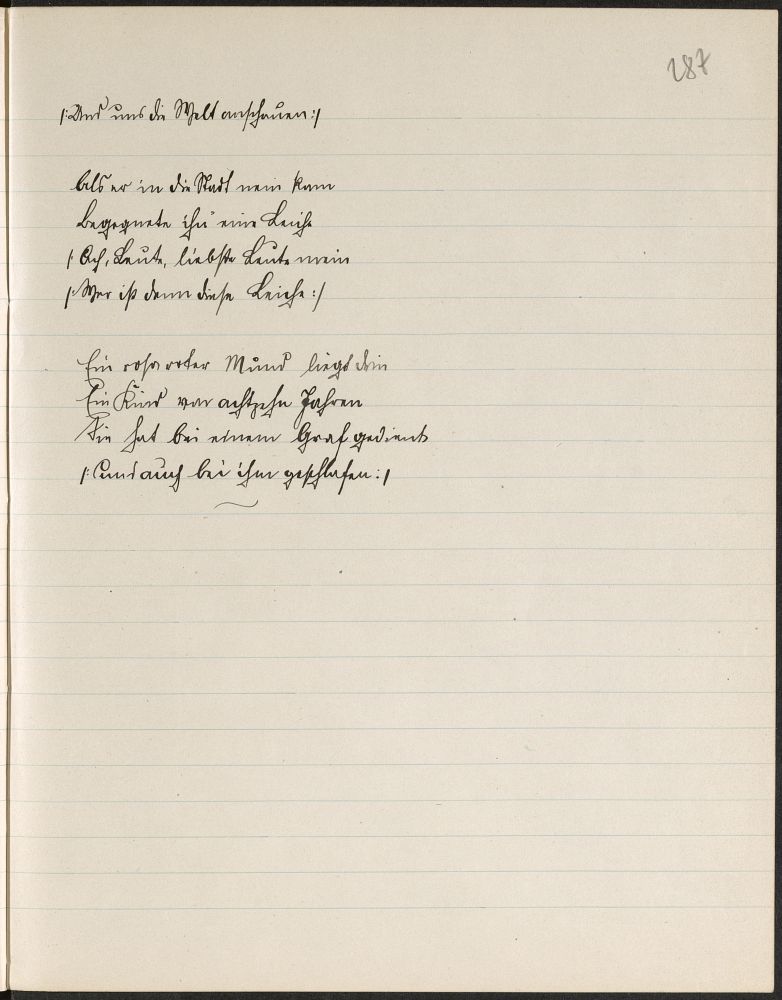 287
/: Und uns die Welt anschauen :/
Als er in die Stadt nein kam
Begegnete ihn eine Leiche
/: Ach, Leute, liebste Leute mein
/: Wer ist denn diese Leiche :/
Ein rosaroter Mund liegt drin
Ein Kind von achtzehn Jahren
Sie hat bei einem Graf gedient
/: Und auch bei ihm geschlafen :/